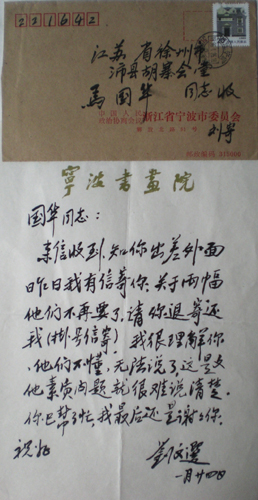 221642
江苏省徐州市
沛县胡寨会堂
馬国华同志收
中国人民
政治协商会议
浙江省宁波市委员会
刘寄
邮政编码
寧波書畫院
国华同志：
来信收到，知你出差外面
昨日我有信寄你。关于两幅
他们不再要了，请你退寄还
我（挂号信寄）我很理解你
他们不懂，无法说了，这是文
化素质问题就很难说清楚。
你已帮了忙，我最后还是谢谢你。
祝好
劉文選
一月廿四日